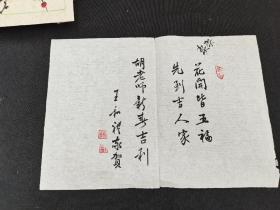 花開皆五福
先到吉人家
胡老师新春吉利
王和
敬賀